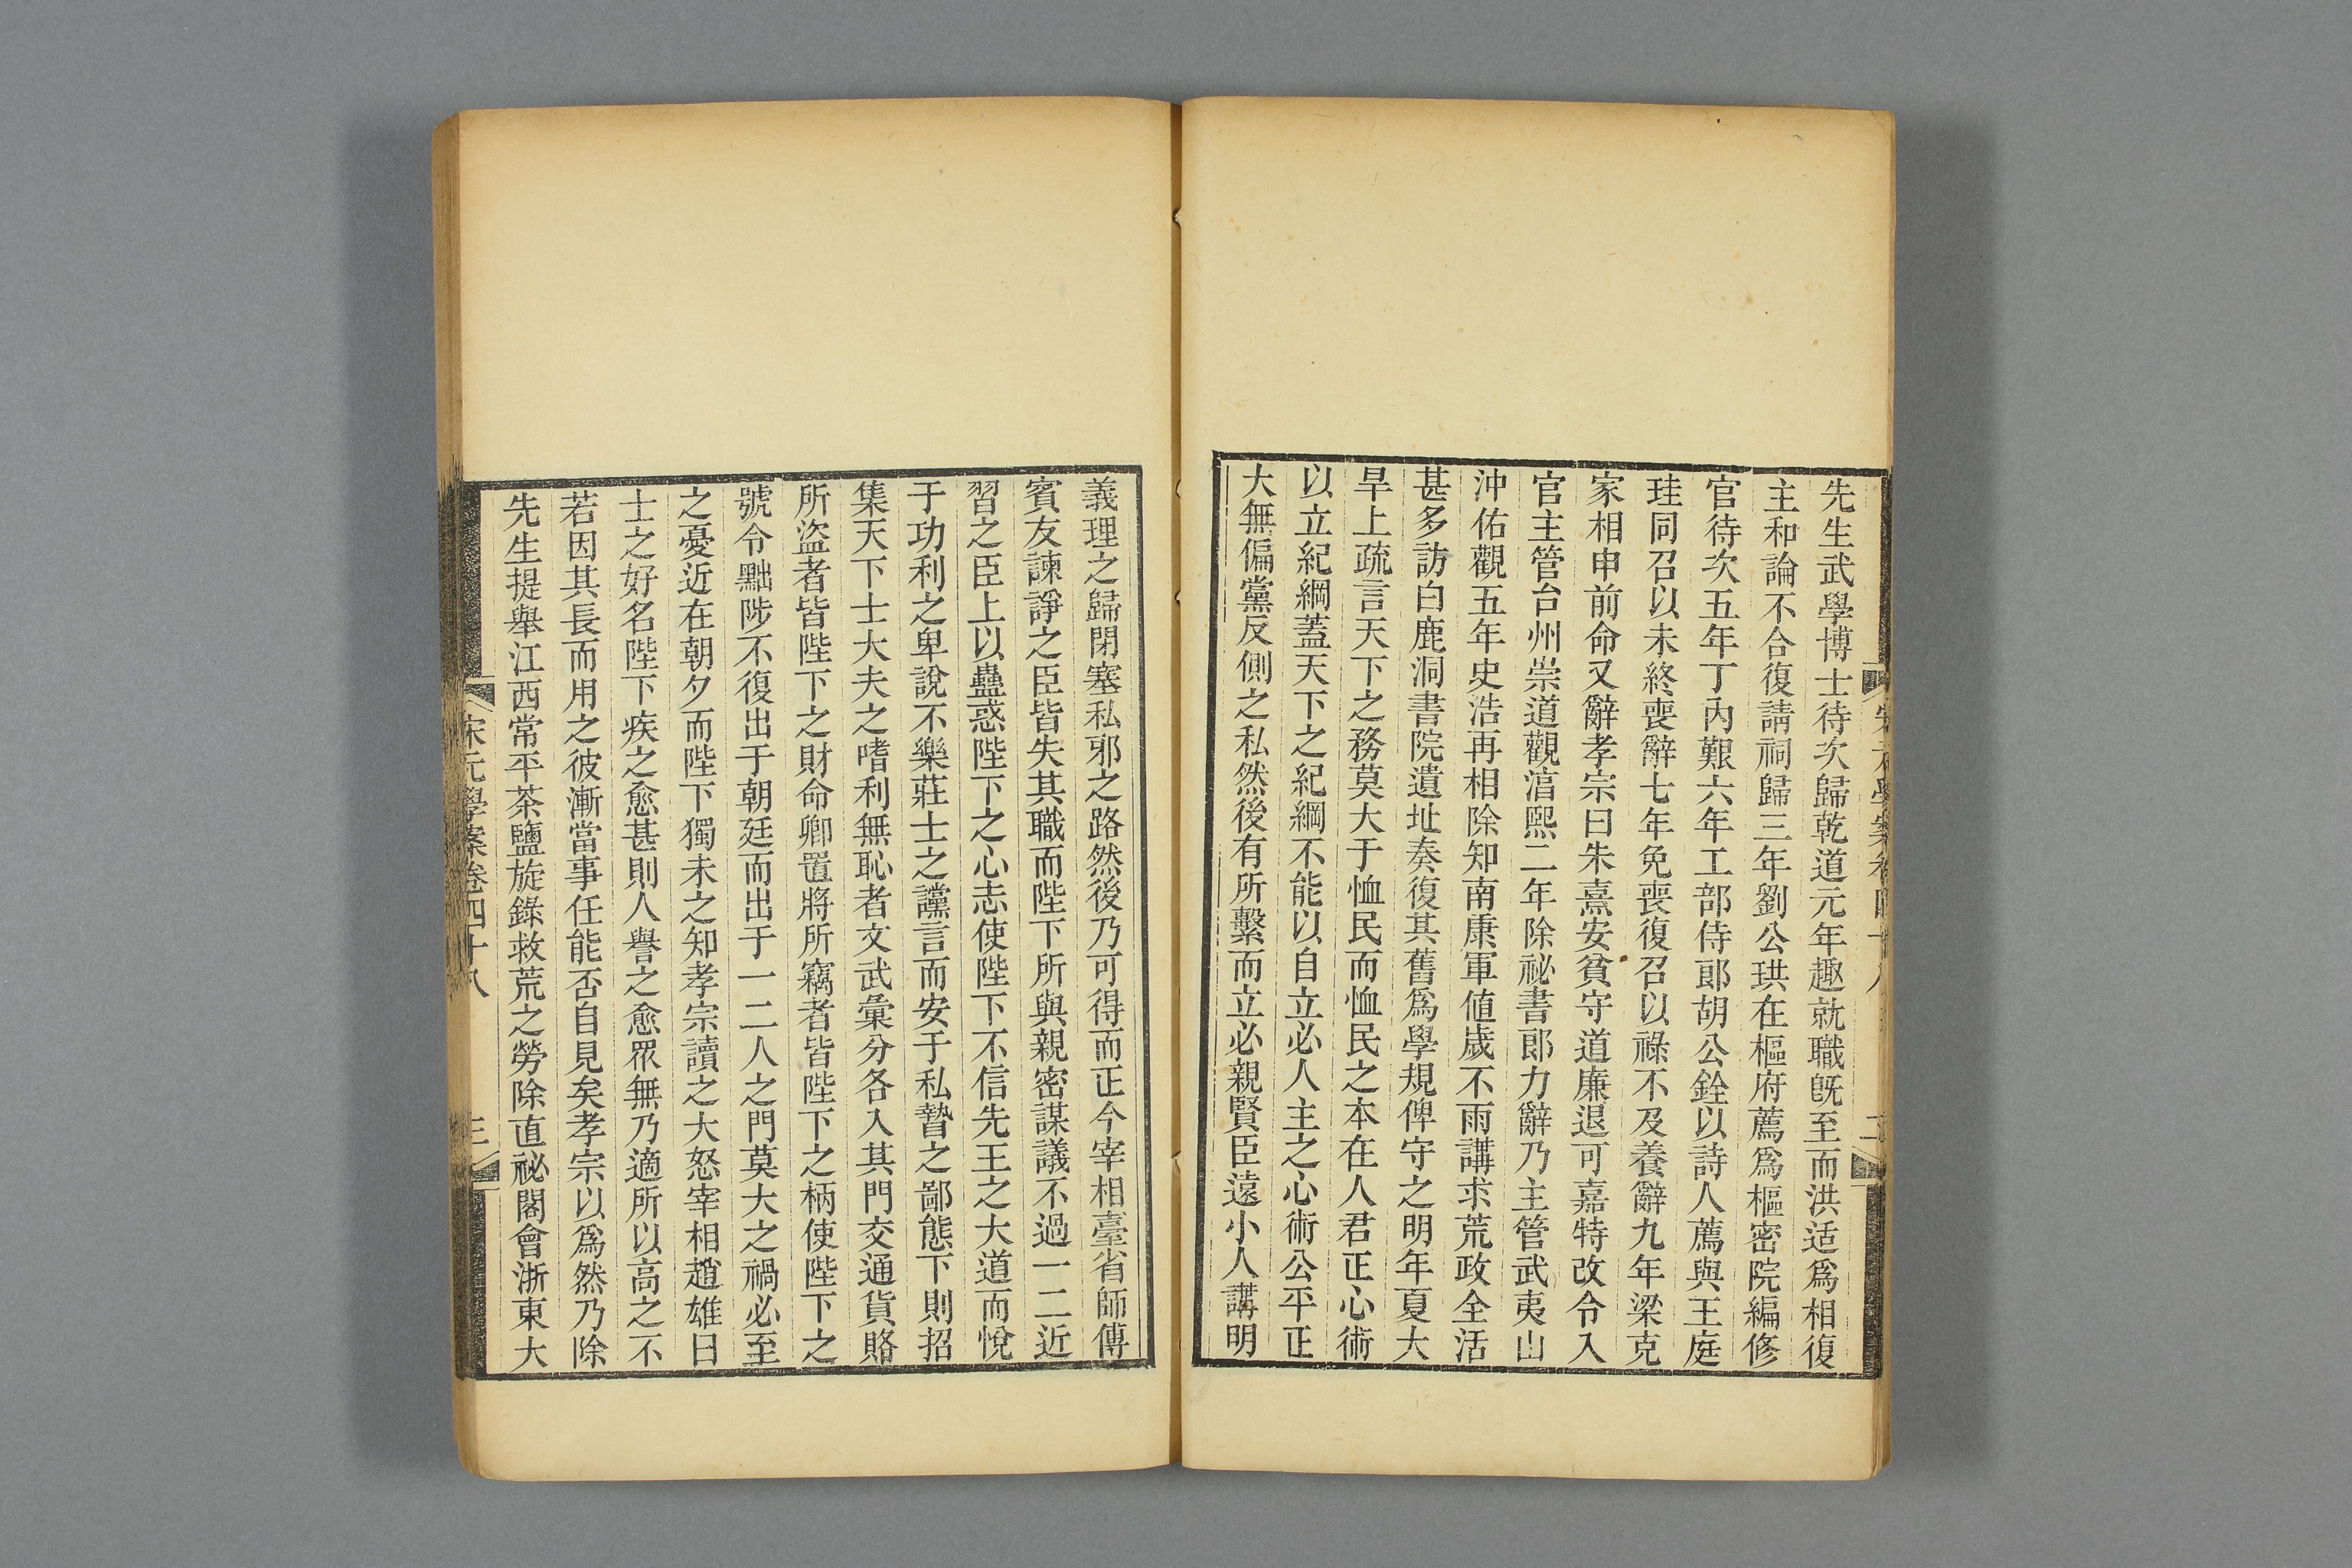 先生武學博士待次歸乾道元年趣就職旣至而洪适爲相復
主和論不合復請祠歸三年劉公珙在樞府薦爲樞密院編修
官待次五年丁內艱六年工部侍郎胡公銓以詩人薦與王庭
珪同召以未終喪辭七年免喪復召以祿不及養辭九年梁克
家相申前命又辭孝宗曰朱熹安貧守道廉退可嘉特改令入
官主管台州崇道觀淯熙二年除祕書郎力辭乃主管武夷山
沖佑觀五年史浩再相除知南康軍値歲不雨講求荒政全活
甚多訪白鹿洞書院遺址奏復其舊爲學規俾守之明年夏大
旱上疏言天下之務莫大于恤民而恤民之本在人君正心術
以立紀綱蓋天下之紀綱不能以自立必人主之心術公平正
大無偏黨反側之私然後有所繫而立必親賢臣遠小人講明
義理之歸閉塞私邪之路然後乃可得而正今宰相臺省師傅
賓友諫諍之臣皆失其職而陛下所與親密謀議不過一二近
習之臣上以蠱惑陛下之心志使陛下不信先王之大道而悅
于功利之卑說不樂莊士之讜言而安于私䞇之鄙態下則招
集天下士大夫之嗜利無恥者文武彙分各入其門交通貨賂
所盜者皆陛下之財命卿置將所竊者皆陛下之柄使陛下之
號令黜陟不復出于朝廷而出于一二人之門莫大之禍必至
之憂近在朝夕而陛下獨未之知孝宗讀之大怒宰相趙雄曰
士之好名陛下疾之愈甚則人譽之愈眾無乃適所以高之不
若因其長而用之彼漸當事任能否自見矣孝宗以爲然乃除
先生提舉江西常平茶鹽旋錄救荒之勞除直祕閣會浙東大
宋元學案卷四十八
三